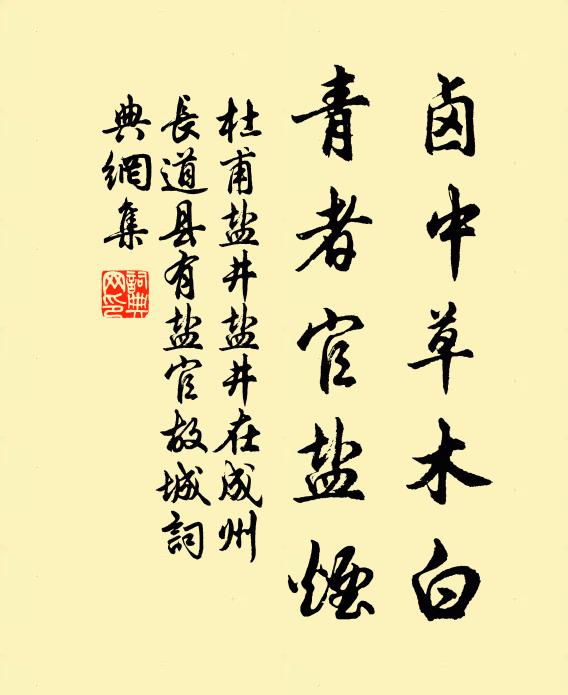 卤中草木白
青者官盐烟
杜甫盐井盐井在成州
长道县有盐官故城詞
典網集
詞典
网印